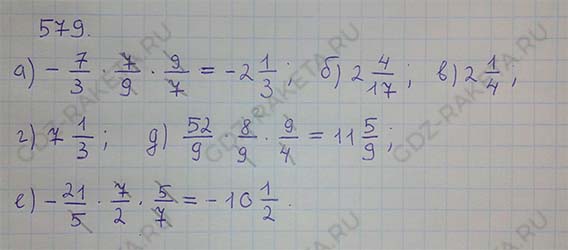 579.
а) - 7/3 · 7/9 · 9/7 = -2 1/3; б) 2 4/17; в) 2 1/4;
г) 7 1/3; д) 52/9 · 8/9 · 9/4 = 11 5/9;
е) - 21/5 · 7/2 · 5/7 = -10 1/2.
GDZ-RAKETA.RU
GDZ-RAKETA.RU
GDZ-RAKETA.RU
GDZ-RAKETA.RU